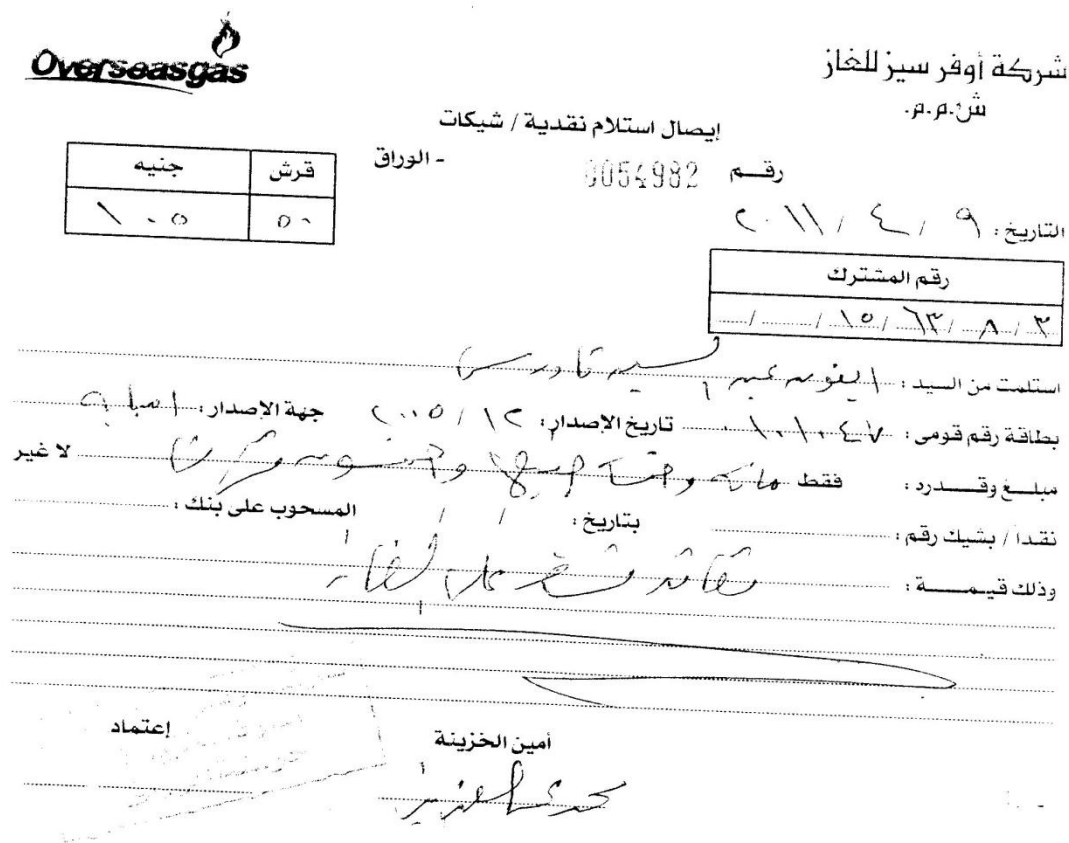 Overseasgas
شركة أوفر سيز للغاز
ش.م.م.
إيصال استلام نقدية / شيكات
رقم 0054982 - الوراق
جنيه قرش
١٠٥ ٥٠
التاريخ: ٩ / ٤ / ٢٠١١
رقم المشترك
٣ / ٨ / ٦٣ / ١٥ / /
استلمت من السيد:
بطاقة رقم قومى: ٠١٠١٠٤٧ تاريخ الإصدار: ١٢ / ٢٠٠٥ جهة الإصدار:
مبلغ وقدره: فقط مائة وخمسة جنيها وخمسون قرش لا غير
نقدا / بشيك رقم: بتاريخ: / / المسحوب على بنك:
وذلك قيمة: الغاز
أمين الخزينة إعتماد